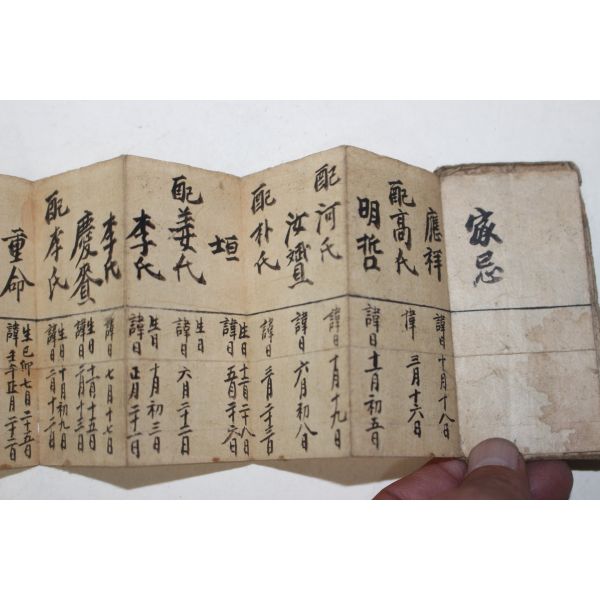 家忌
應祥 諱日十月十八日
配高氏 諱三月十六日
明哲 諱日十二月初五日
配河氏 諱日十月十九日
汝贇 諱日六月初八日
配朴氏 諱日三月二十三日
垣 生日十二月二十八日
諱日五月二十六日
配姜氏 生日
諱日六月二十二日
李氏 生日十月初三日
諱日正月二十一日
李氏 諱日七月十七日
慶賚 生日十一月十五日
諱日二月十三日
配李氏 生日十月初九日
諱日二月十二日
重命 生己卯七月二十五日
諱壬午正月二十二日